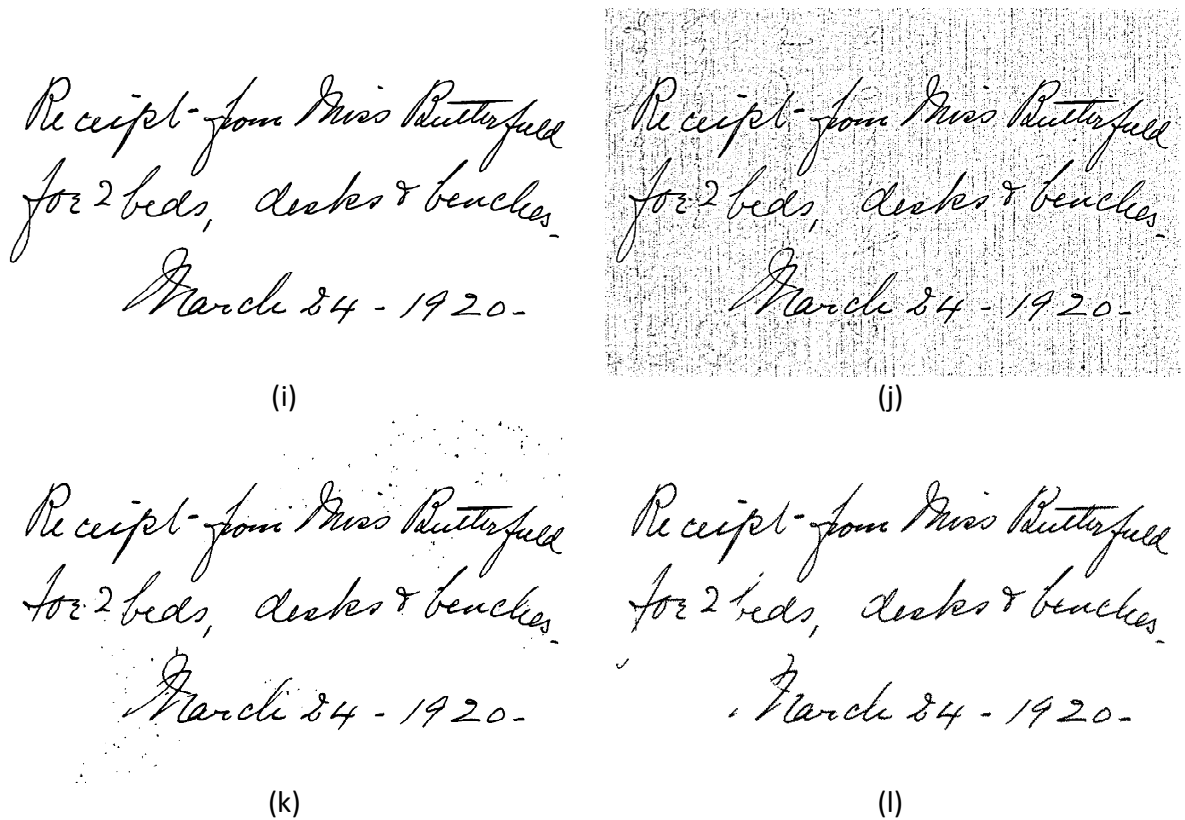 Receipt- from Miss Butterfield
for 2 beds, desks & benches.
March 24 - 1920-
(i)
Receipt- from Miss Butterfield
for 2 beds, desks & benches.
March 24 - 1920-
(j)
Receipt- from Miss Butterfield
for 2 beds, desks & benches.
March 24 - 1920-
(k)
Receipt- from Miss Butterfield
for 2 beds, desks & benches.
March 24 - 1920-
(l)